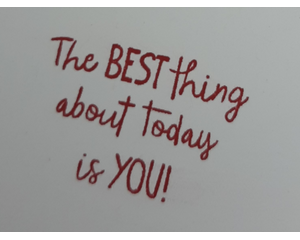 The BEST thing
about today
is YOU!